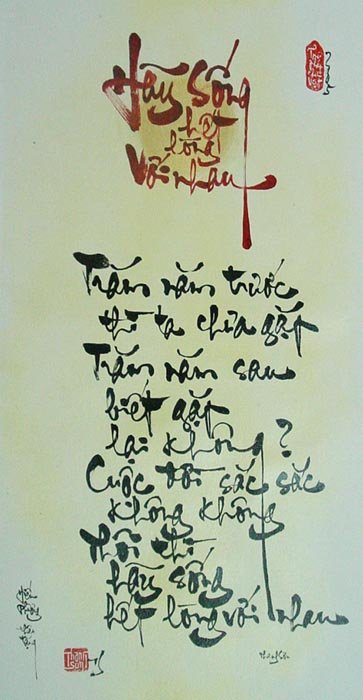 Hãy sống
hết
lòng
Với nhau
Trăm năm trước
thì ta chưa gặp
Trăm năm sau
biết gặp
lại không?
Cuộc đời sắc sắc
không không
Thôi thì
hãy sống
hết lòng với nhau
Thanh
Sơn